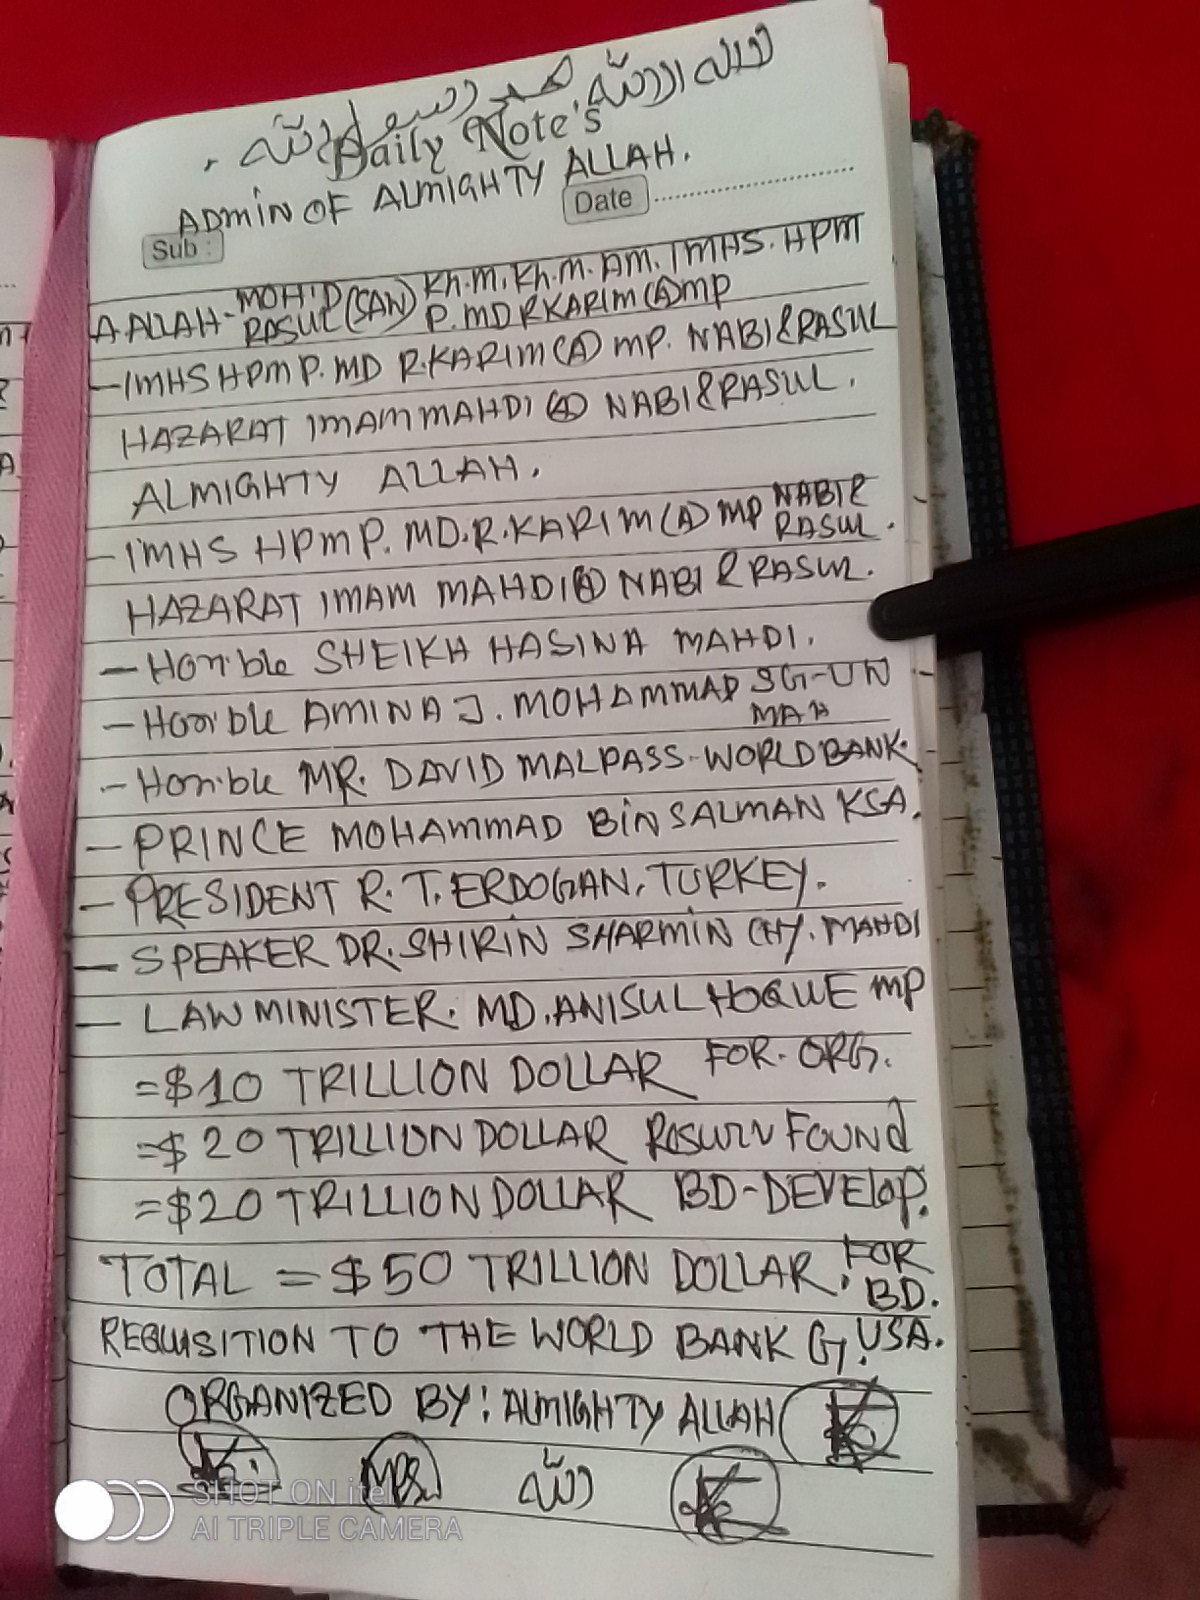 لا اله الا الله محمد رسول الله
Daily Note's
ADMIN OF ALMIGHTY ALLAH.
Date
Sub :
A.ALLAH-MOHD RASUL(SAN) Kh.M.Kh.M.AM.IMHS.HPM P.MD RKARIM(A)MP
-IMHS HPM P.MD R.KARIM(A) MP. NABI & RASUL
HAZARAT IMAM MAHDI(A) NABI & RASUL.
ALMIGHTY ALLAH.
-IMHS HPM P.MD.R.KARIM(A) MP NABI & RASUL.
HAZARAT IMAM MAHDI(A) NABI & RASUL.
- Hon'ble SHEIKH HASINA MAHDI.
- Hon'ble AMINA J. MOHAMMAD SG-UN MAH
- Hon'ble MR. DAVID MALPASS-WORLD BANK.
- PRINCE MOHAMMAD BIN SALMAN KSA.
- PRESIDENT R.T.ERDOGAN, TURKEY.
- SPEAKER DR.SHIRIN SHARMIN CHY. MAHDI
- LAW MINISTER. MD.ANISUL HOQUE MP
=$10 TRILLION DOLLAR FOR. ORG.
=$20 TRILLION DOLLAR FOUNd
=$20 TRILLION DOLLAR BD-DEVElOP.
TOTAL = $50 TRILLION DOLLAR. FOR BD.
REQUSITION TO THE WORLD BANK G. USA.
ORGANIZED BY: ALMIGHTY ALLAH
الله
SHOT ON itel
AI TRIPLE CAMERA